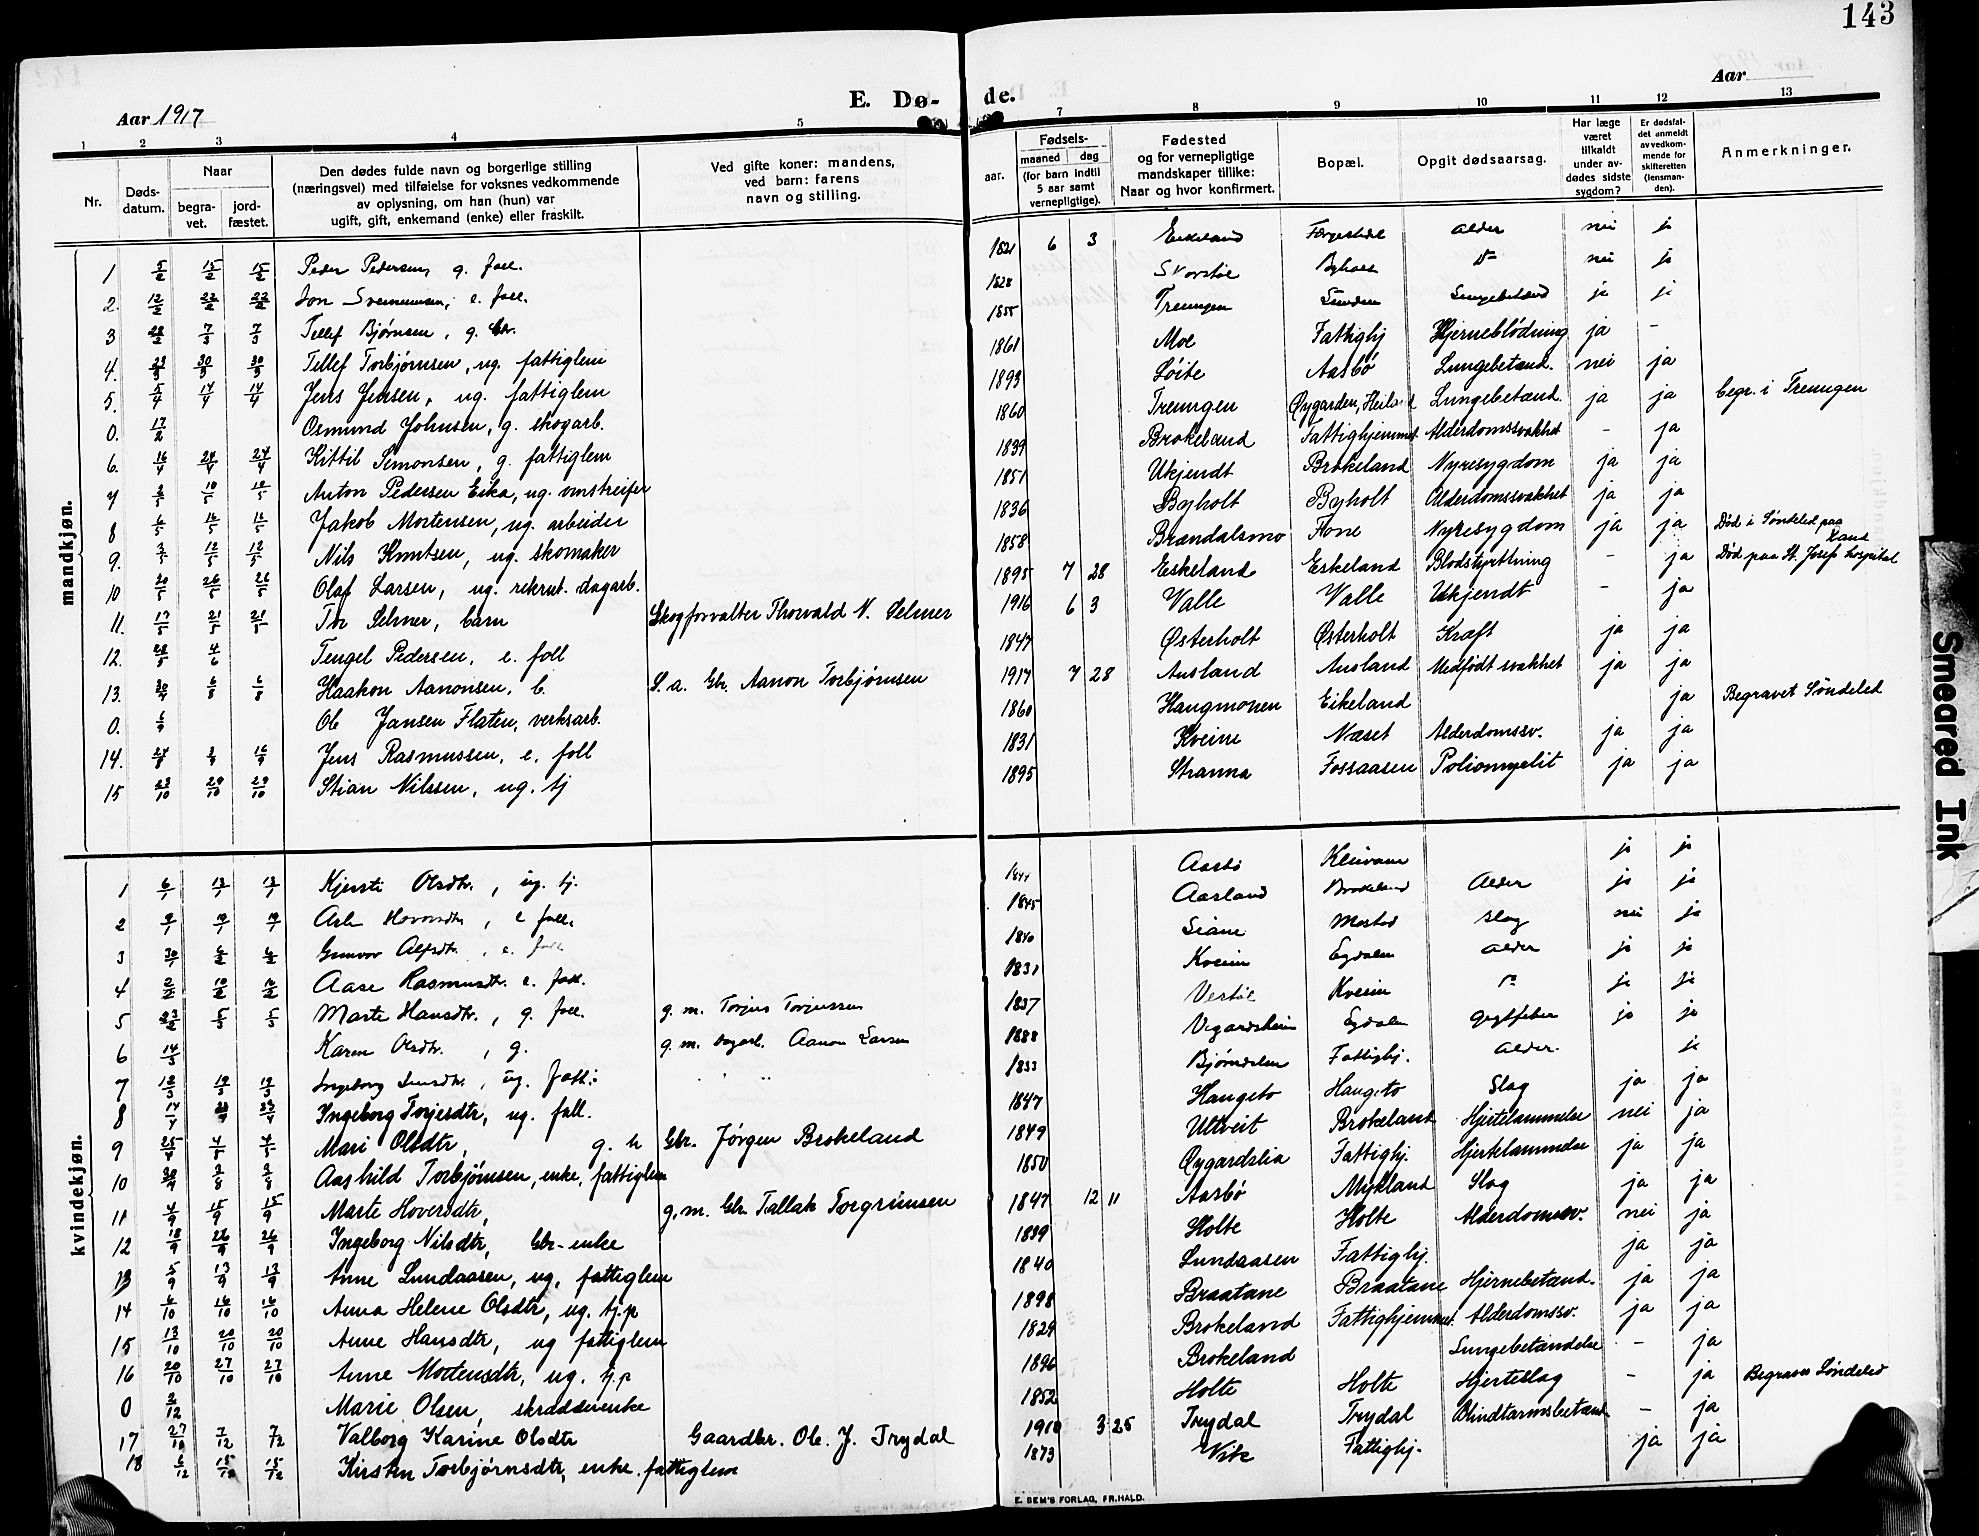 143
Aar 1917
E. Dø-
de.
Aar
1 2 3 4 5 7 8 9 10 11 12 13
Nr.
Døds-
datum.
Naar
begra-
vet.
jord-
fæstet.
Den dødes fulde navn og borgerlige stilling
(næringsvei) med tilføielse for voksnes vedkommende
av oplysning, om han (hun) var
ugift, gift, enkemand (enke) eller fraskilt.
Ved gifte koner: mandens,
ved barn: farens
navn og stilling.
Fødsels-
aar.
maaned
dag
(for barn indtil
5 aar samt
vernepligtige).
Fødested
og for vernepligtige
mandskaper tillike:
Naar og hvor konfirmert.
Bopæl.
Opgit dødsaarsag.
Har læge
været
tilkaldt
under av-
dødes sidste
sygdom?
Er dødsfal-
det anmeldt
av vedkom-
mende for
skifteretten
(lensman-
den).
Anmerkninger.
mandkjøn.
1 5/2 15/2 15/2 Peder Pedersen, g. foll. 1821 6 3 Eikeland Alder nei ja
2. 12/2 22/2 22/2 Jon e. foll. 1828 nei ja
3 7/3 7/3 Tellef Bjørnsen, g. Gbr. 1855 Treungen Lungebetænd ja ja
4. 23/3 30/3 30/3 Tellef Torbjørnsen, ug. fattiglem 1861 Moe Fattighj Hjerneblödning ja -
5. 5/4 14/4 14/4 Jens Jensen, ug. fattiglem 1893 Löite Aasbö Lungebetænd. nei ja
0. 17/2 Osmund Johnsen, g. skogarb. 1860 Treungen Øygarden, Heiland Lungebetænd. ja ja begr. i Treungen
6. 16/4 24/4 24/4 Kittil Simonsen, g. fattiglem 1839 Brokeland Fattighjemmet Alderdomssvakhet - ja
7 10/5 10/5 Anton Pedersen Eika, ug. omstreifer 1851 Ukjendt Brokeland Nyresygdom ja ja
8 6/5 16/5 16/5 Jakob Mortensen, ug. arbeider 1836 Byholt Byholt Alderdomssvakhet ja ja
9. 3/5 12/5 12/5 Nils Knutsen, ug. skomaker 1858 Brændalsmo Fone Nyresygdom ja ja Död i Söndeled paa
10 20/5 26/5 26/5 Olaf Larsen, ug. rekrut. dagarb. 1895 7 28 Eskeland Eskeland Blodstyrtning - ja Död paa St. Josef hospital
11. 17/5 21/5 21/5 Tor Selmer, barn Skogforvalter Thorvald N. Selmer 1916 6 3 Valle Valle Ukjendt - ja
12. 28/5 4/6 Tengel Pedersen, e. foll 1847 Østerholt Østerholt Kræft ja ja
13. 6/8 6/8 Haakon Aanonsen, b. S. a. Gbr. Aanon Torbjørnsen 1917 7 28 Ausland Ausland Medfödt svakhet ja ja
0. Ole Jansen Flaten, verksarb. 1860 Haugmonen Eikeland ja Begravet Söndeled
14. Jens Rasmussen, e. foll 1831 Kveim Næset Alderdomssv. ja ja
15 23/10 29/10 29/10 Stian Nilssen, ug. tj 1895 Stranna Fossaasen Poliomyelit ja ja
kvindekjøn.
1 6/1 13/1 13/1 Kjersti Olsdtr., ug. tj. 1844 Aasbö ja ja
2 e foll. 1845 Aasland Brokeland Alder ja ja
3 30/1 Gunvor e. foll 1840 Slag nei ja
4 10/2 10/2 Aase Rasmusdtr. e. foll. 1831 Kveim Egdalen Alder ja ja
5 23/2 5/3 5/3 Marte Hansdtr., g. foll. g. m. Torjus Torjussen 1837 Vestöl Kveim ja ja
6 14/3 Karen Olsdtr., g. g. m. dagarb. Aanon Larsen 1888 Vegardsheim Egdalen gigtfeber ja ja
7 Ingeborg ug. fatt. 1833 Fattighj. Alder. ja
8 14/4 23/4 23/4 Ingeborg Torjesdtr, ug. foll. 1847 Haugeto Haugeto Slag ja ja
9 25/4 4/5 4/5 Mari Olsdtr, g. Gbr. Jörgen Brokeland 1849 Ultveit Brokeland Hjertelammelse nei ja
10 3/8 3/8 Aashild Torbjörnsen, enke, fattiglem 1850 Øygardslia Fattighj. Hjertelammelse ja ja
11 4/9 15/9 15/9 Marte Hoversdtr, g. m. Gbr. Tallak Torgrimsen 1847 12 11 Aasbö Mykland Slag ja ja
12 18/9 26/9 26/9 Ingeborg Nilsdtr, Gbr-enke 1839 Holte Holte Alderdomssv. nei ja
13 5/9 13/9 13/9 Anne Lundaasen, ug, fattiglem 1840 Lundaasen Fattighj. ja ja
14 6/10 16/10 16/10 Anna Helene Olsdtr, ug. tj.p 1898 Braatane Braatane Hjernebetænd. ja ja
15 13/10 20/10 20/10 Anne Hansdtr, ug fattiglem 1829 Brokeland Fattighjemmet Alderdomssv. ja ja
16 20/10 27/10 27/10 Anne Mortensdtr, ug. tj.p 1896 Brokeland Lungebetændelse - ja
0 3/12 Marie Olsen, skrædderenke 1852 Holte Holte Hjerteslag - ja Begraves Söndeled
17 7/12 7/12 Valborg Karine Olsdtr Gaardbr. Ole. J. Trydal 1910 3 25 Trydal Trydal Blindtarmsbetænd - ja
18 6/12 15/12 15/12 Kirsten Torbjørnsdtr, enke. fattiglem 1873 Vik Fattighj. ja ja
E. SEM'S FORLAG, FR.HALD.
Smeared Ink